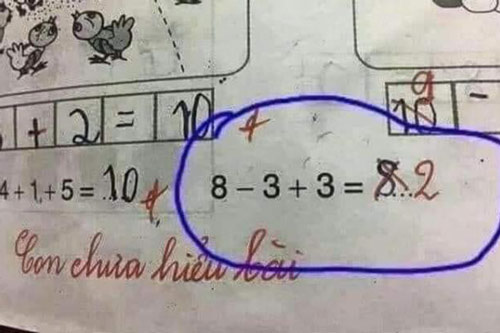 9
+ 2 = 10 10 -
4 + 1 + 5 = 10 8 - 3 + 3 = 8 2
Con chưa hiểu bài